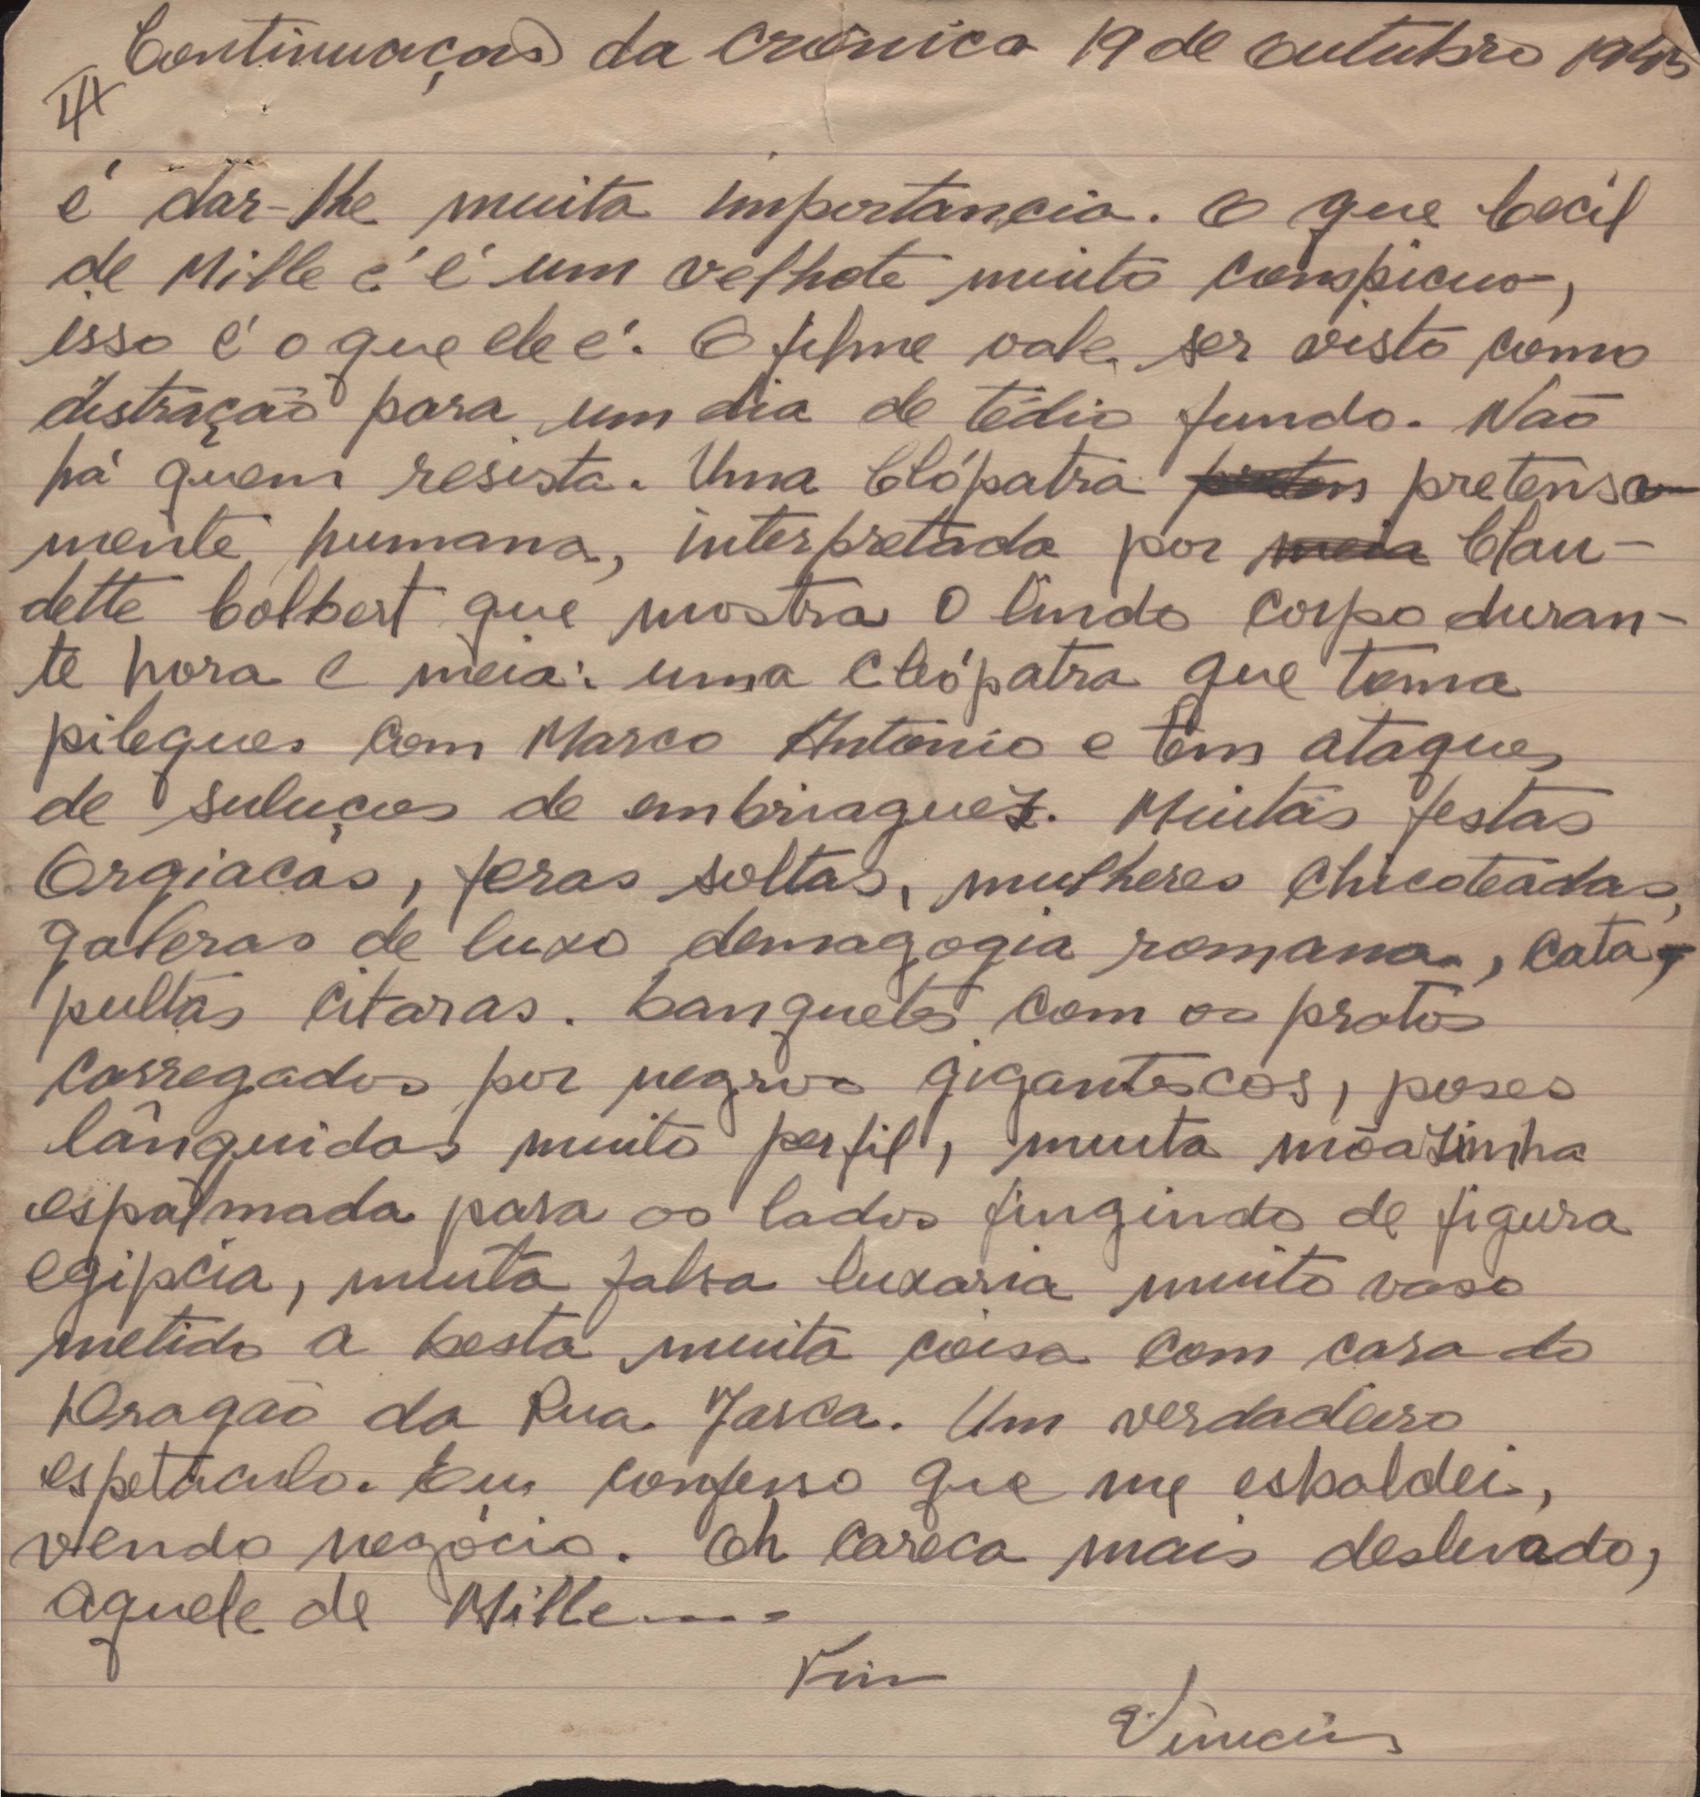 Continuação da crônica 19 de outubro 1945
III
é dar-lhe muita importancia. O que Cecil
de Mille é é um velhote muito conspicuo,
isso é o que ele é. O filme vale ser visto como
distração para um dia de tédio fundo. Não
há quem resista. Uma Cleópatra pretensa-
mente humana, interpretada por Clau-
dette Colbert que mostra o lindo corpo duran-
te hora e meia: uma Cleópatra que toma
pileques com Marco Antonio e tem ataques
de suluços de embriaguez. Muitas festas
Orgiacas, feras soltas, mulheres chicoteadas,
galeras de luxo demagogia romana, cata-
pultas citaras. banquetes com os pratos
carregados por negros gigantescos, poses
lânguidas muito perfil, muita mãozinha
espalmada para os lados fingindo de figura
egipcia, muita falsa luxaria muito vaso
metido a besta muita coisa com cara do
Dragão da Rua Larca. Um verdadeiro
espetáculo. Eu confesso que me esbaldei,
vendo negócio. Oh careca mais deslavado,
aquele de Mille....
Fim
Vinicius